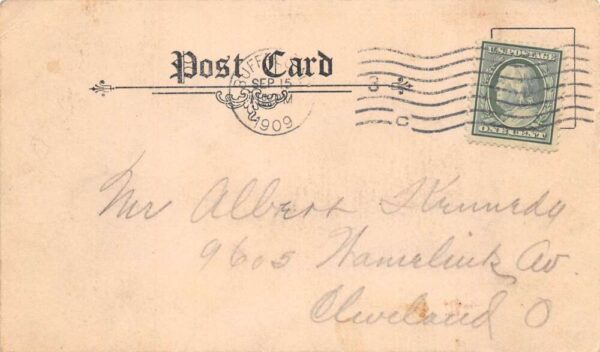 Post Card
BUFFALO
SEP 15
M
1909
3
C
U.S. POSTAGE
ONE CENT
Mr Albert Kennedy
9605 Hamelink Av.
Cleveland O